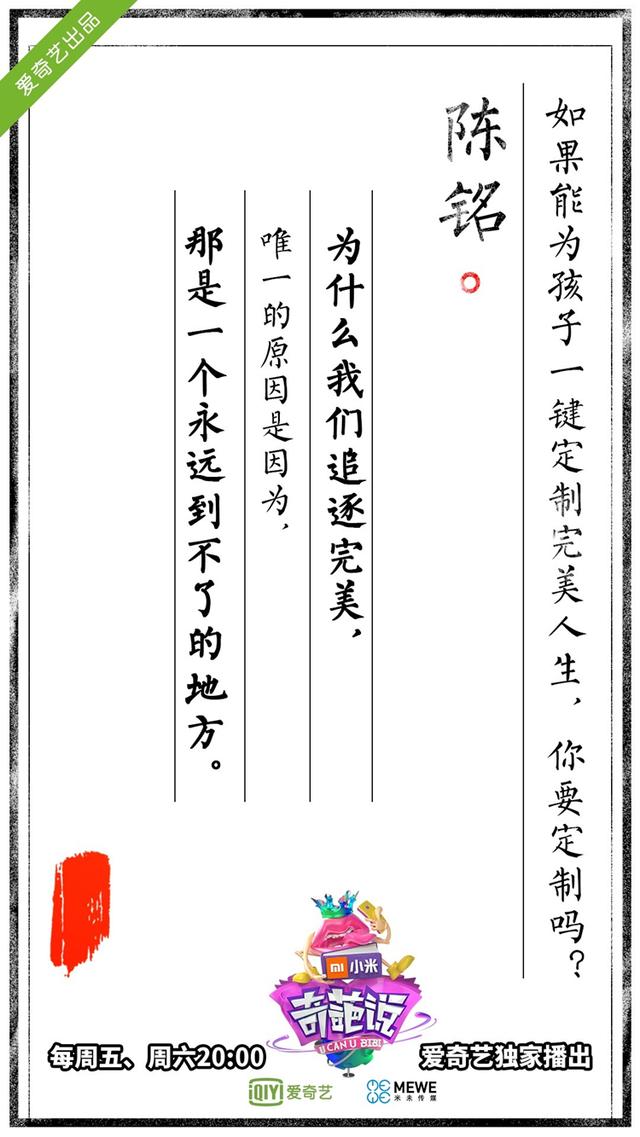 爱奇艺出品
如果能为孩子一键定制完美人生，你要定制吗？
陈铭
为什么我们追逐完美，
唯一的原因是因为，
那是一个永远到不了的地方。
小米
奇葩说
U CAN U BIBI
每周五、周六20:00
爱奇艺独家播出
iQIYI 爱奇艺
MEWE
米未传媒